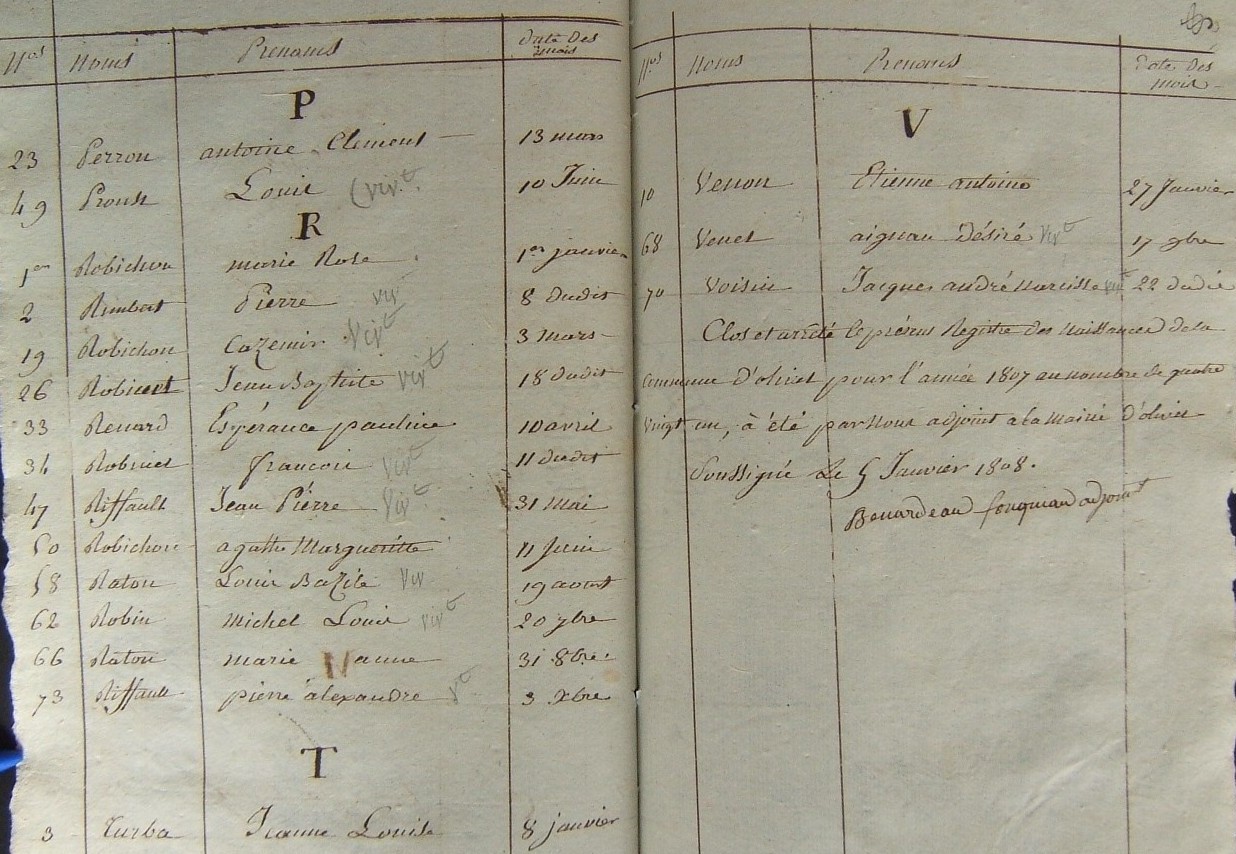 Nos Noms Prenoms Date des mois
P
23 Perron antoine Clement 13 mars
49 Proust Louis (vivt. 10 Juin
R
1er Robichon marie Rose 1er janvier
2 Rimbert Pierre viv 8 dudit
19 Robichon Cazemir Vivt 3 mars
26 Robinet Jean Baptiste vivt 18 dudit
33 Renard Espérance pauline 10 avril
34 Robinet francois vivt 11 dudit
47 Riffault Jean Piérre Vivt 31 Mai
50 Robichon agathe Margueritte 11 Juin
58 Raton Louis Bazile viv 19 aout
62 Robin michel Louis vivt 20 7bre
66 Raton marie anne 31 8bre
73 Riffault pierre alexandre vt 3 Xbre
T
3 Turba Jeanne Louise 8 janvier
Nos Noms Prenoms Date des mois
V
10 Venon Etienne antoine 27 Janvier
68 Venet aignan Désiré vivt 17 9bre
70 Voisin Jacques andré Narcisse vivt 22 dudit
Clos et arrêté le présent Registre des Naissances de la
Commune D'olivet pour l'année 1807 au nombre de quatre
Vingt un, à été par Nous adjoint a la Mairie D'olivet
Soussigné Le 5 Janvier 1808.
Benardeau adjoint